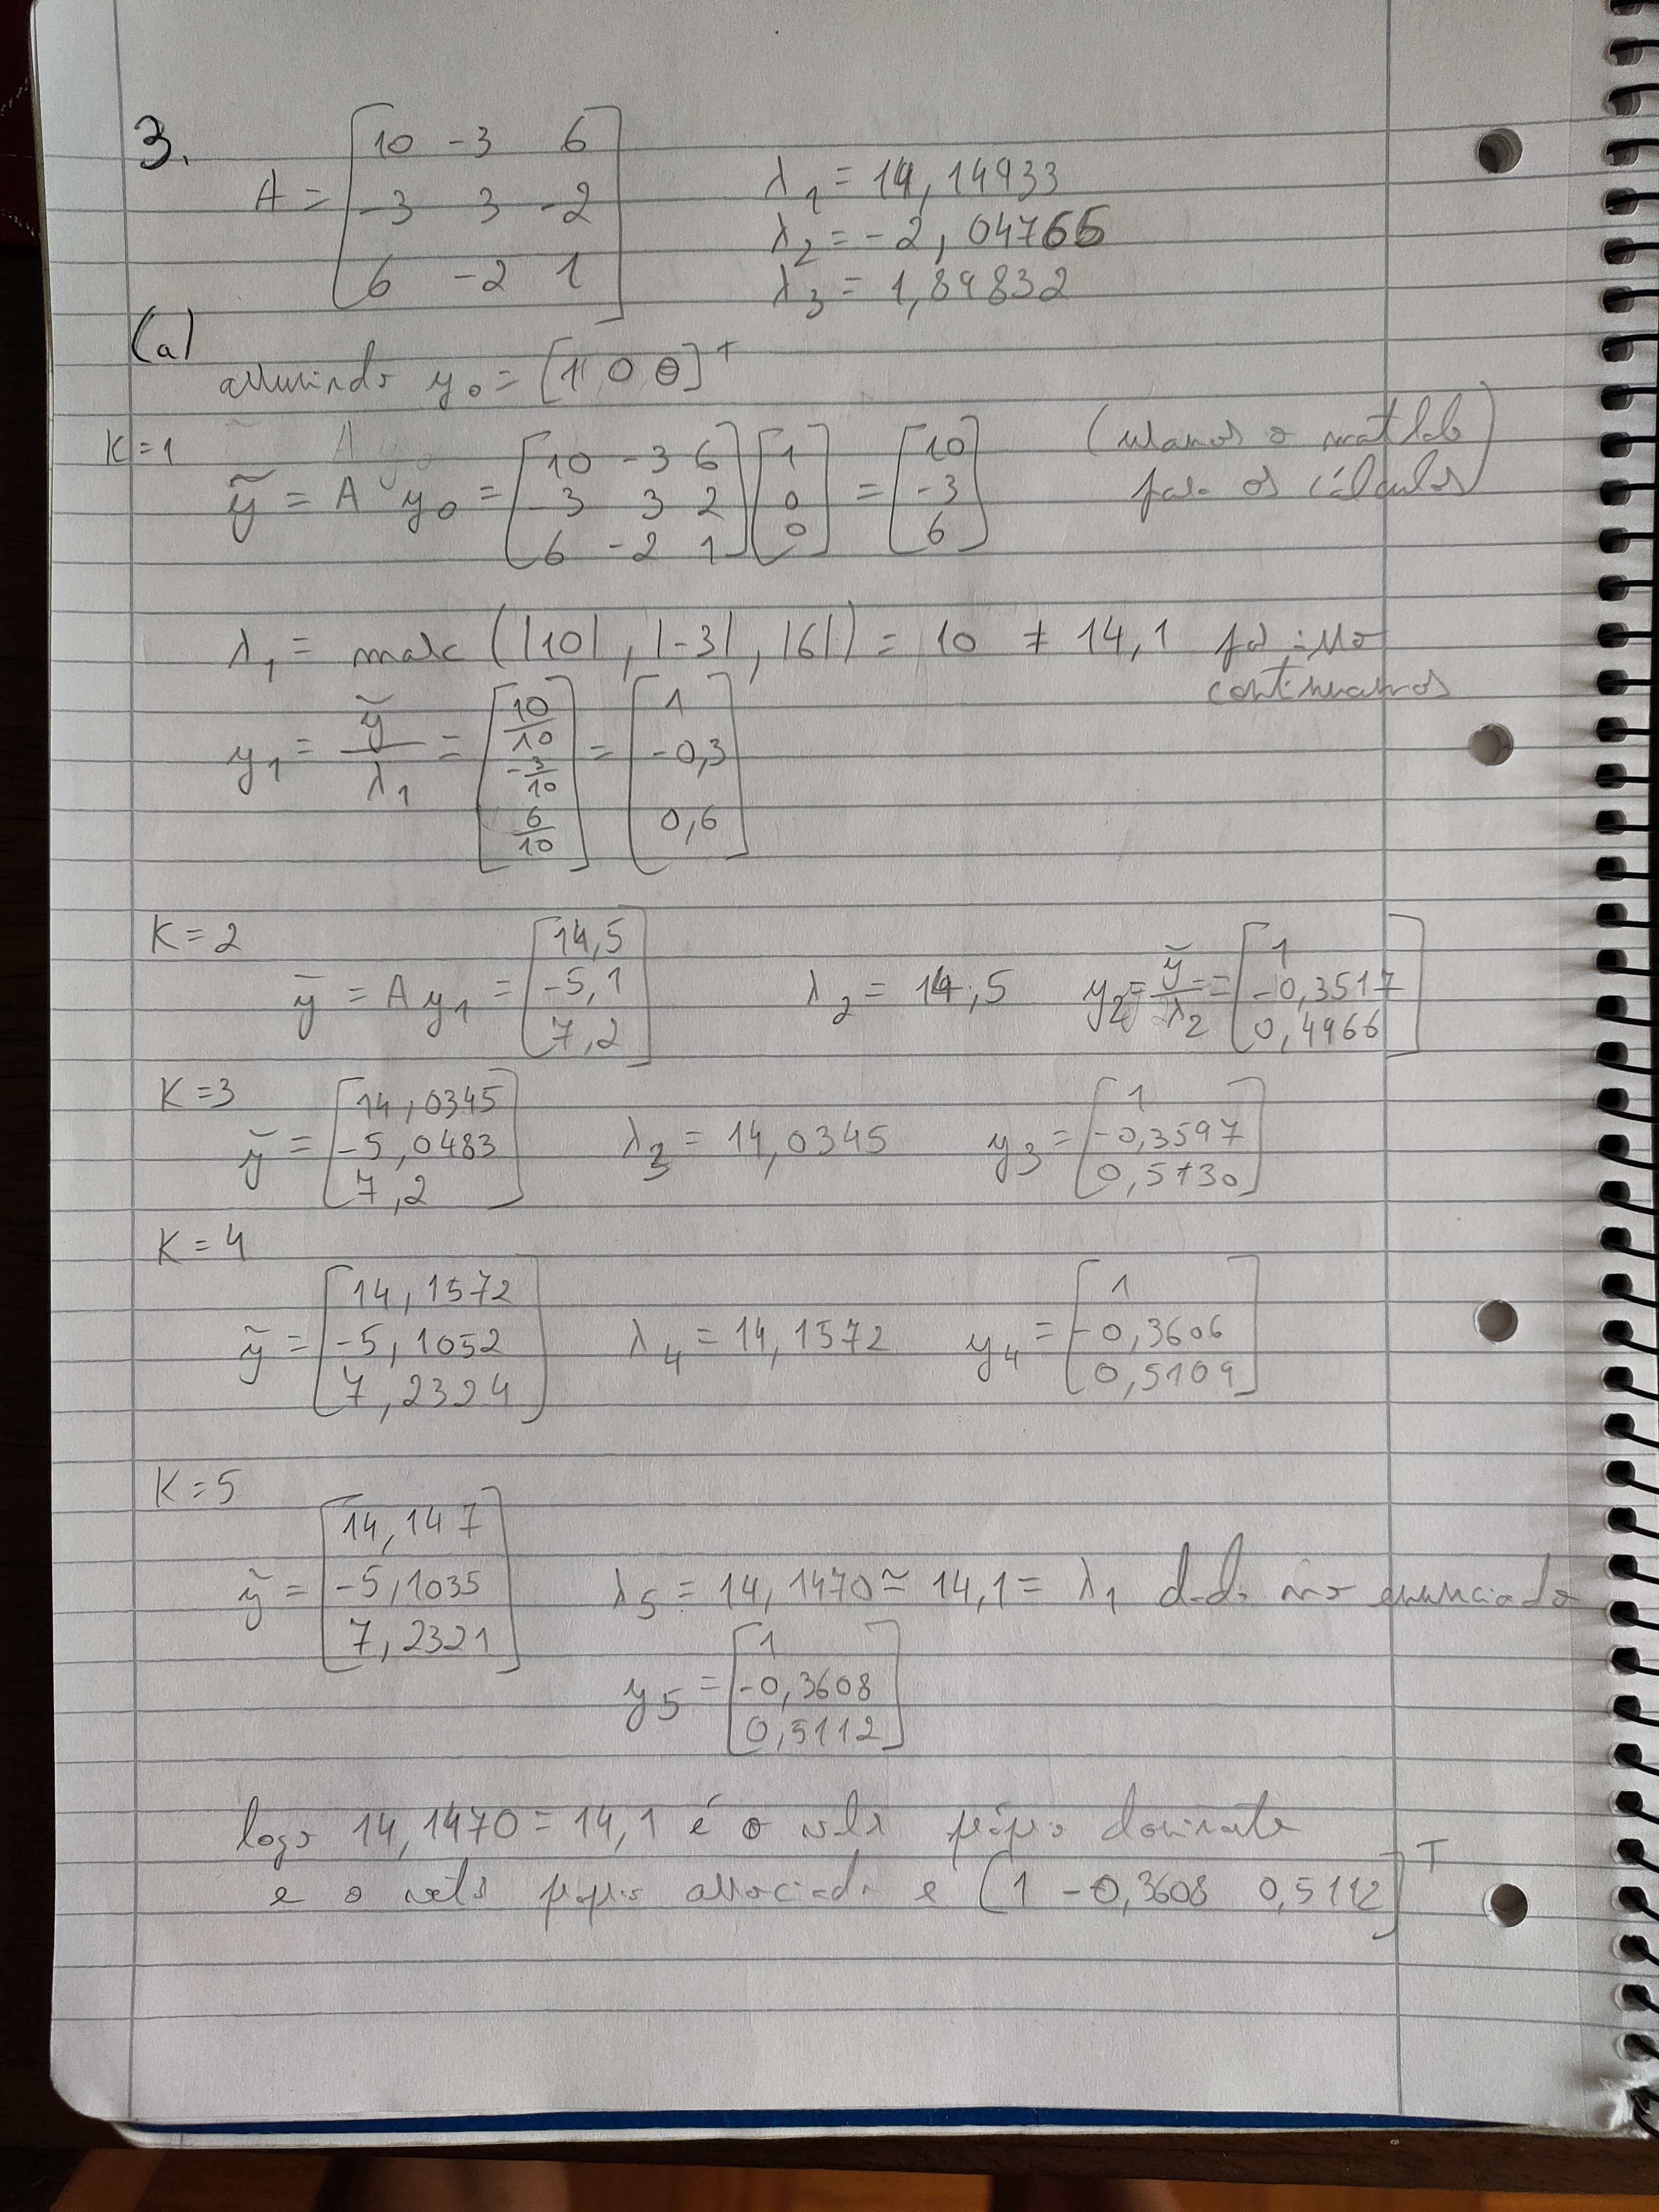 3.
A = [10 -3 6
-3 3 -2
6 -2 1]
λ1 = 14,14933
λ2 = -2,04765
λ3 = 1,89832
(a)
assumindo y0 = [1 0 0]^T
K=1
ỹ = A y0 = [10 -3 6; -3 3 2; 6 -2 1] [1; 0; 0] = [10; -3; 6] (usamos o matlab
para os cálculos)
λ1 = max (|10|, |-3|, |6|) = 10 ≠ 14,1 por isso
continuamos
y1 = ỹ/λ1 = [10/10; -3/10; 6/10] = [1; -0,3; 0,6]
K=2
ỹ = A y1 = [14,5; -5,1; 7,2] λ2 = 14,5 y2 = ỹ/λ2 = [1; -0,3517; 0,4966]
K=3
ỹ = [14,0345; -5,0483; 7,2] λ3 = 14,0345 y3 = [1; -0,3597; 0,5130]
K=4
ỹ = [14,1572; -5,1052; 7,2324] λ4 = 14,1572 y4 = [1; -0,3606; 0,5109]
K=5
ỹ = [14,147; -5,1035; 7,2321] λ5 = 14,1470 ≃ 14,1 = λ1 dado no enunciado
y5 = [1; -0,3608; 0,5112]
logo 14,1470 = 14,1 é o valor próprio dominante
e o vetor próprio associado e [1 -0,3608 0,5112]^T